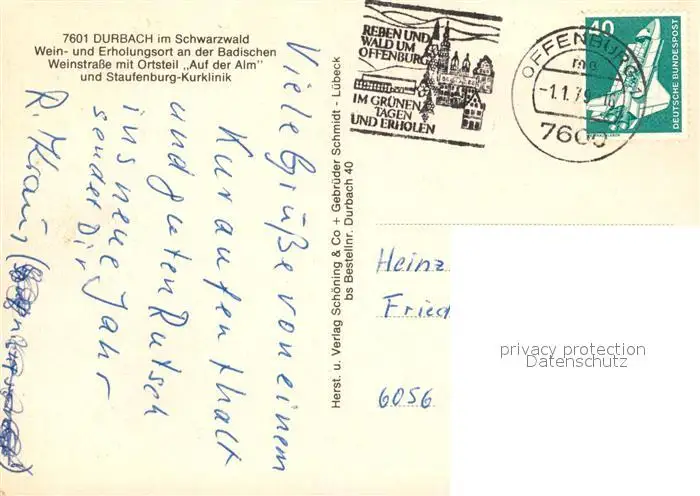 7601 DURBACH im Schwarzwald
Wein- und Erholungsort an der Badischen
Weinstraße mit Ortsteil „Auf der Alm"
und Staufenburg-Kurklinik
Viele Grüße von einem
Kuraufenthalt
und guten Rutsch
ins neue Jahr
sendet Dir
R. Kraus
Herst. u. Verlag Schöning & Co + Gebrüder Schmidt - Lübeck
bs Bestellnr. Durbach 40
REBEN UND
WALD UM
OFFENBURG
IM GRÜNEN
TAGEN
UND ERHOLEN
OFFENBURG
-1.1.79
7600
40
DEUTSCHE BUNDESPOST
Heinz
Fried
6056
privacy protection
Datenschutz